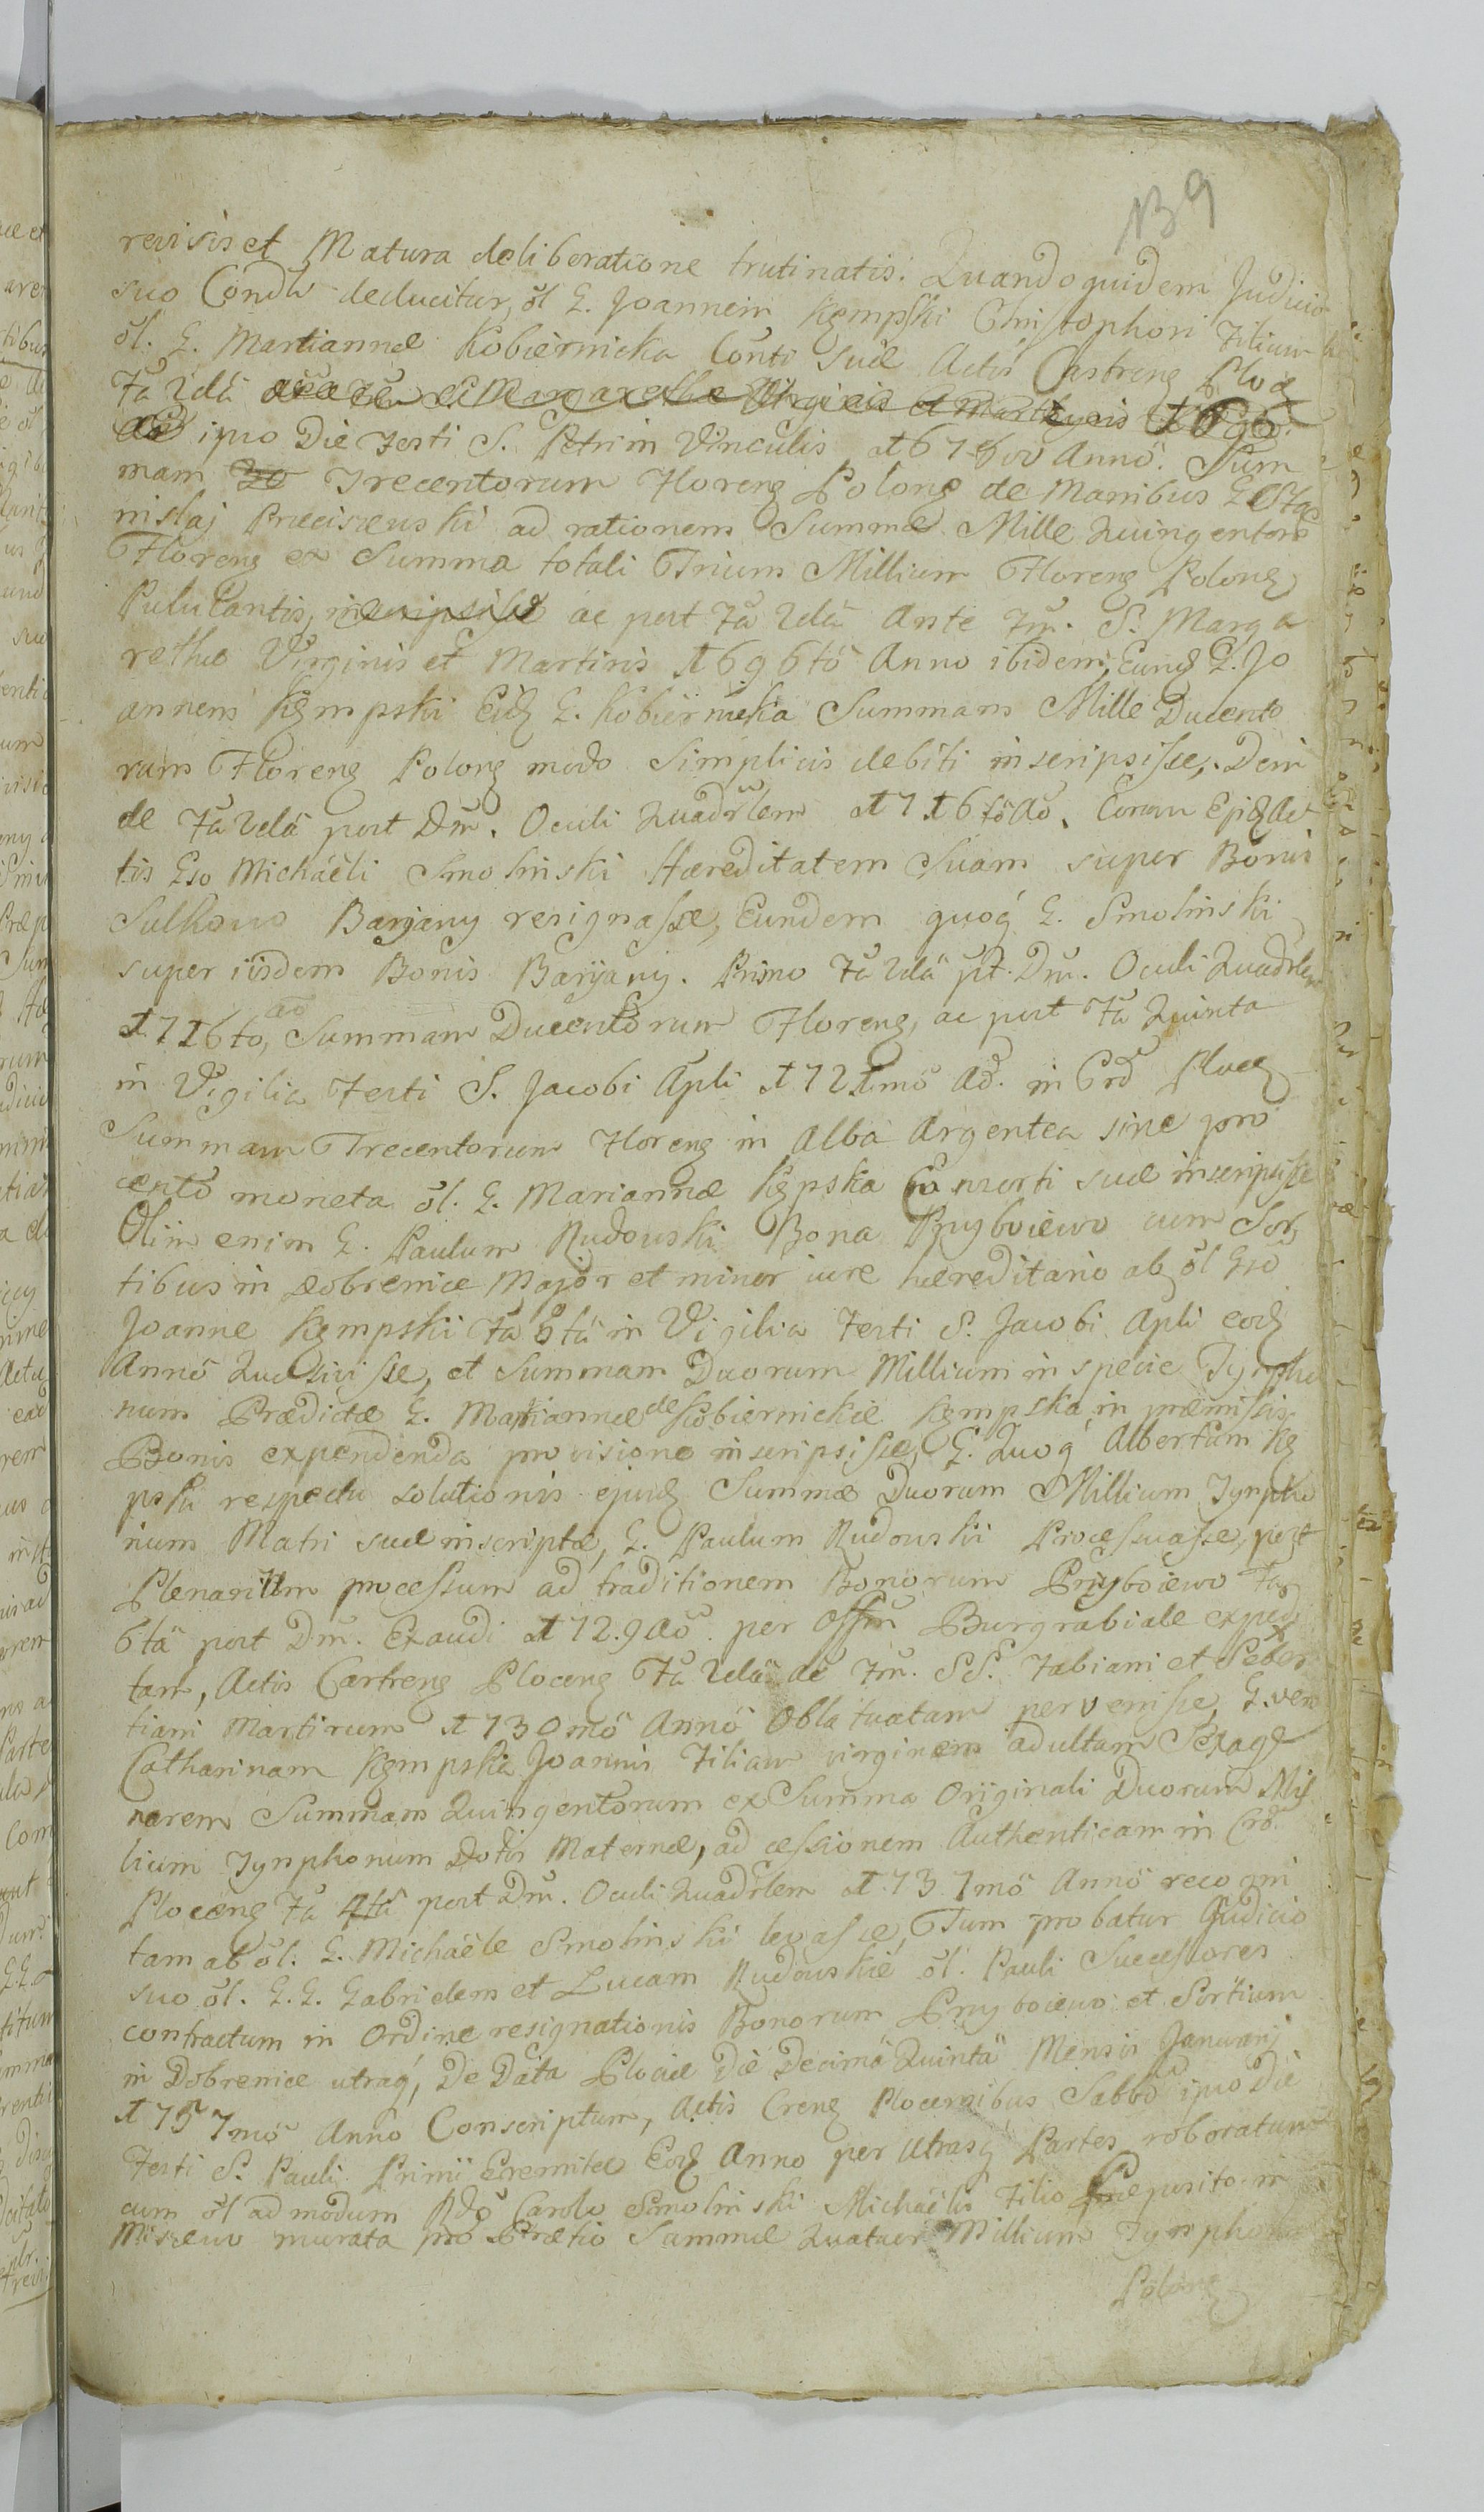 139
revisis et Matura deliberatione trutinatis. Quandoquidem Judicio
suo Condli deducitur, õl G. Joannem Kempski Christophori Filium
õl. G. Mariannæ Kobiernicka Conti suæ Actis Castreng Ploc
Fã 2dã S. Margarethæ Virginis et Martyris 1696
ipso Die Festi S. Petri in Vinculis Annõ. Sum
mam Trecentorum Floreng Polong de Manibus G. Sta
nislaj Præciszewski ad rationem Summæ Mille Quingentoru
Floreng ex Summa totali Trium Millium Floreng Polong
Pululantis, inscripsisse ac post Fã 2dã Ante Fm. S. Marga
rethæ Virginis et Martiris 1696tõ Anno ibidem, Eund G. Jo
annem Kempski Eid G. Kobiernicka Summam Mille Ducento
rum Floreng Polong modo Simplicis debiti inscripsisse, Dein
de Fã 2dã post Dm. Oculi Quadrlem 1716tõ Aõ. Coram Ejsd Ac
tis Gso Michaëli Smolinski Hæreditatem Suam super Bonis
Sulkowo Baryany resignasse, Eundem quoq G. Smolinski
super iisdem Bonis Baryany. Primo Fã 2dã pt. Dm. Oculi Quadrlem
1716to, aõ Summam Ducentorum Floreng, ac post Fã Quinta
in Vigilia Festi S. Jacobi Apli 1721mõ Aõ. in Crõ Ploceg
Summam Trecentorum Floreng in Alba Argentea sine pro
cento moneta õl. G. Mariannæ Kępska Consorti suæ inscripsisse
Olim enim G. Paulum Rudowski Bona Przyboiewo cum Sor
tibus in Dobrenice Major et minor iure hæreditario ab õl Gso
Joanne Kempski Fã 5tã in Vigilia Festi S. Jacobi Apli eod
Annõ Quæsivisse, et Summam Duorum Millium in specie Tympho
num Prædictæ G. Mariannæ de Kobiernickie Kempska in præmissis
Bonis expendenda provisione inscripsisse, G. Quoq Albertum Kę
pski respectu solutionis ejusd Summæ Duorum Millium Tympho
num Matri suæ inscriptæ, G. Paulum Rudowski Processuasse, post
Plenarium processum ad traditionem Bonorum Przyboiewo Fã
6tã post Dm. Exaudi 1729 aõ per Offm Burgrabiale expedi
tam, Actis Castreng Ploceng Fã 2dã Fm. SS. Fabiani et Sebas
tiani Martirum 1730mõ Annõ Oblatuatam pervenisse, G. vero
Catharinam Kempska Joannis Filiam virginem adultam Sexage
narem Summam Quingentorum ex Summa Originali Duorum Mil
lium Tymphonum Dotis Maternæ, ad cessionem Authenticam in Crõ
Ploceng Fã 4tã post Dm. Oculi Quadrlem 1731mõ Annõ recogni
tam ab õl. G. Michaële Smolinski levasse, Tum probatur Judicio
suo õl. G. G. Gabrielem et Lucam Rudowskie õl. Pauli Successores
contractum in Ordine resignationis Bonorum Przyboiewo et Sortium
in Dobrenice utraq, De Data Plociæ Die Decimâ Quintâ Mensis Januarij
1757mõ Anno Conscriptum, Actis Creng Plocensibus Sabbo ipso Die
Festi S. Pauli Primi Eremitæ Eod Anno per Utrasq Partes roboratum
cum õl admodum Rdõ Carolo Smolinski Michaëlis Filio Præposito in
Miszewo murata pro Prætio Summæ Quatuor Millium Tymphonum
Polong